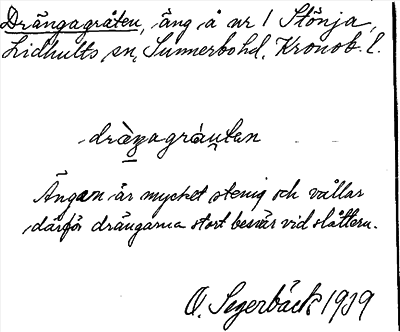 Drängagråten, äng å nr 1 Stönja,
Lidhults sn, Sunnerbo hd, Kronob. l.
dràṉagràu̱tan
Ängen är mycket stenig och vållar
därför drängarna stort besvär vid slåttern.
O. Segerbäck 1939